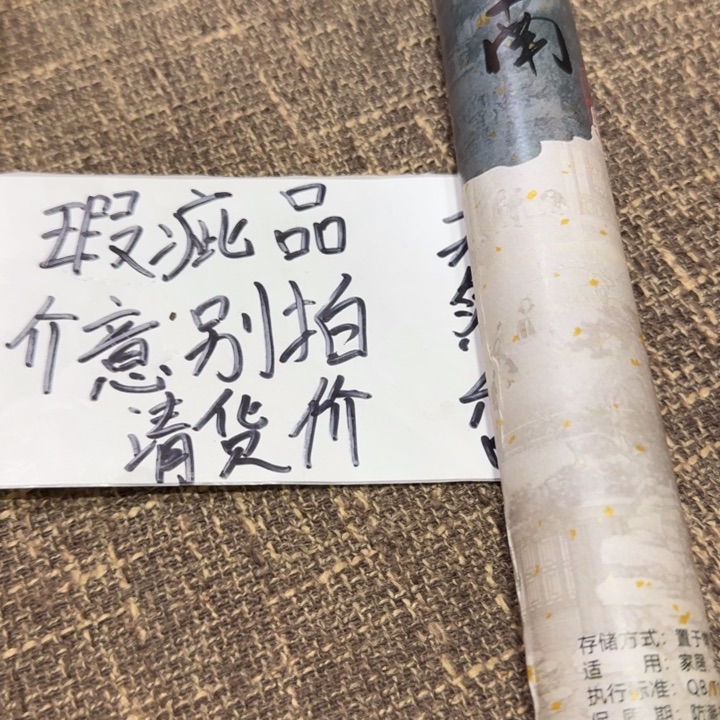 南
瑕疵品
介意别拍
清货价
存储方式：置于
适 用：家居
执行标准：QB/T